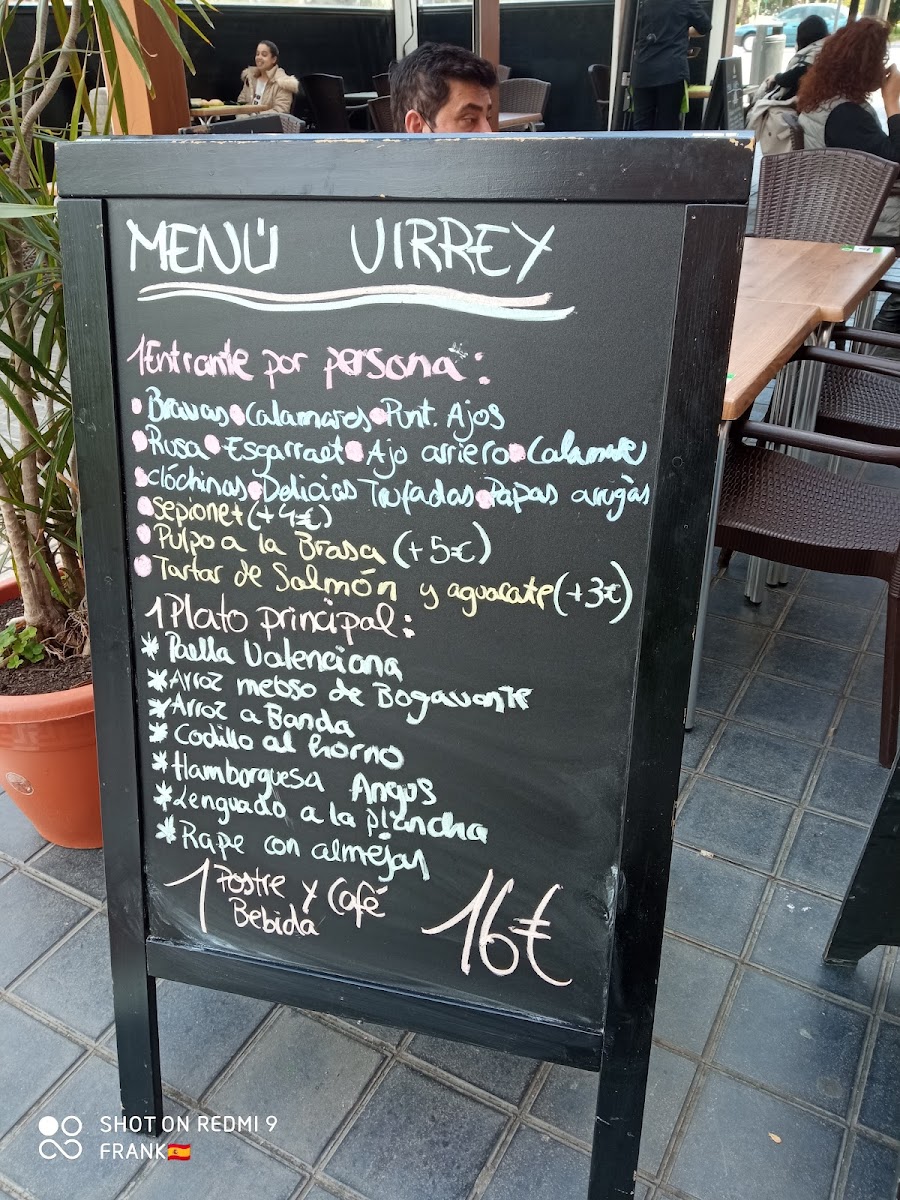 MENÚ VIRREY
1 Entrante por persona:
• Bravas • Calamares • Punt. Ajos
• Rusa • Esgarraet • Ajo arriero • Calamares
• Clóchinas • Delicias Trufadas • Papas arrugàs
• Sepionet (+4€)
• Pulpo a la Brasa (+5€)
• Tartar de Salmón y aguacate (+3€)
1 Plato principal:
* Paella Valenciana
* Arroz meloso de Bogavante
* Arroz a Banda
* Codillo al horno
* Hamburguesa Angus
* Lenguado a la plancha
* Rape con almejas
1 Postre y Café
Bebida
16€
SHOT ON REDMI 9
FRANK🇪🇸